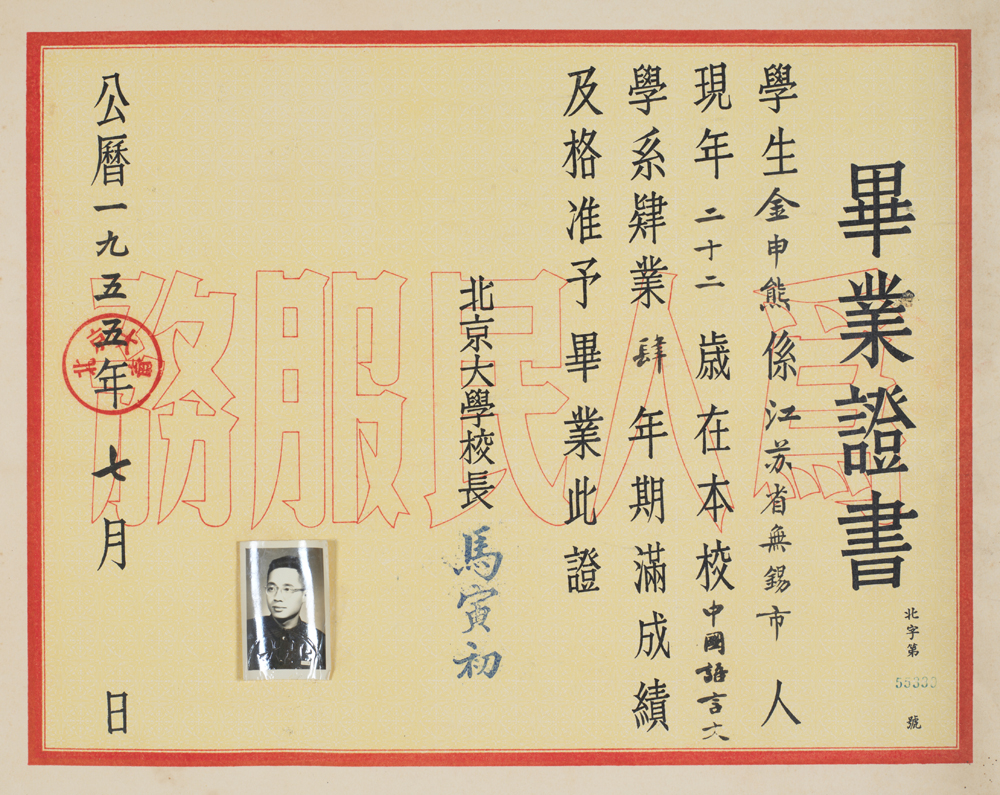 畢業證書
北字第 55333 號
學生金申熊係江苏省無錫市人
現年二十二歲在本校中國語言文
學系肄業肆年期滿成績
及格准予畢業此證
北京大學校長 馬寅初
公曆一九五五年七月 日
為人民服務